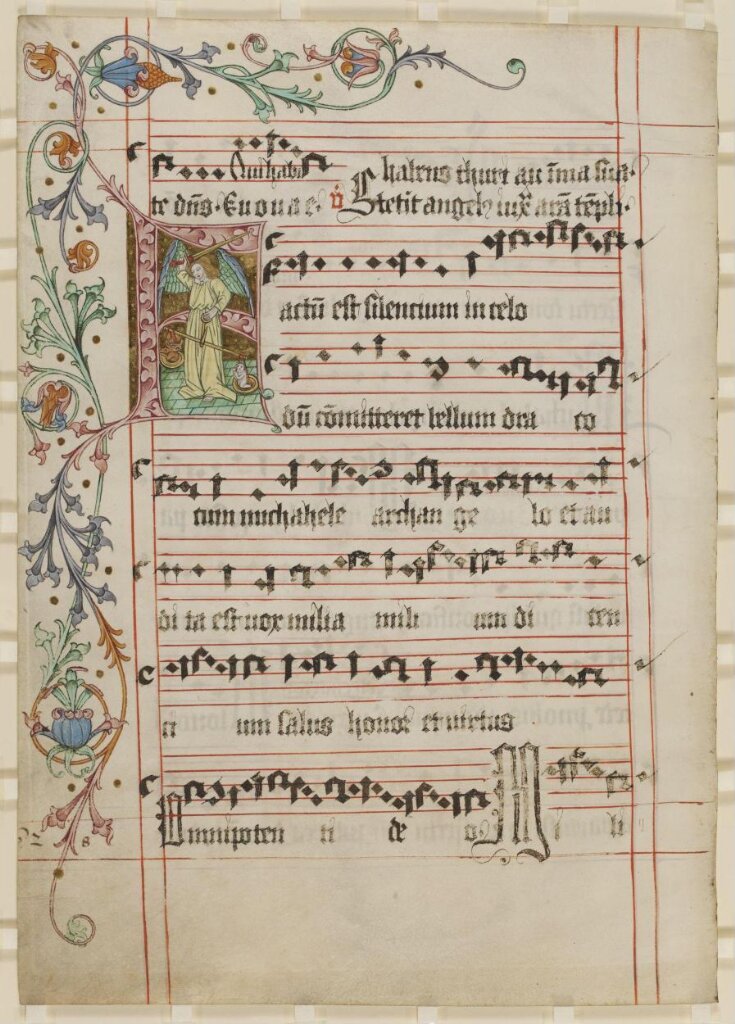 habens thuri au ī ma sua.
te dn̄s. Euouae. v̄ Stetit angelꝯ iux̄ arā tēpli.
Factū est silencium in celo
dū cōmitteret bellum dra co
cum michahele archan ge lo et au
di ta est uox milia mili um di cen
ci um salus honor et uirtus
Omnipoten ti de o Mi li